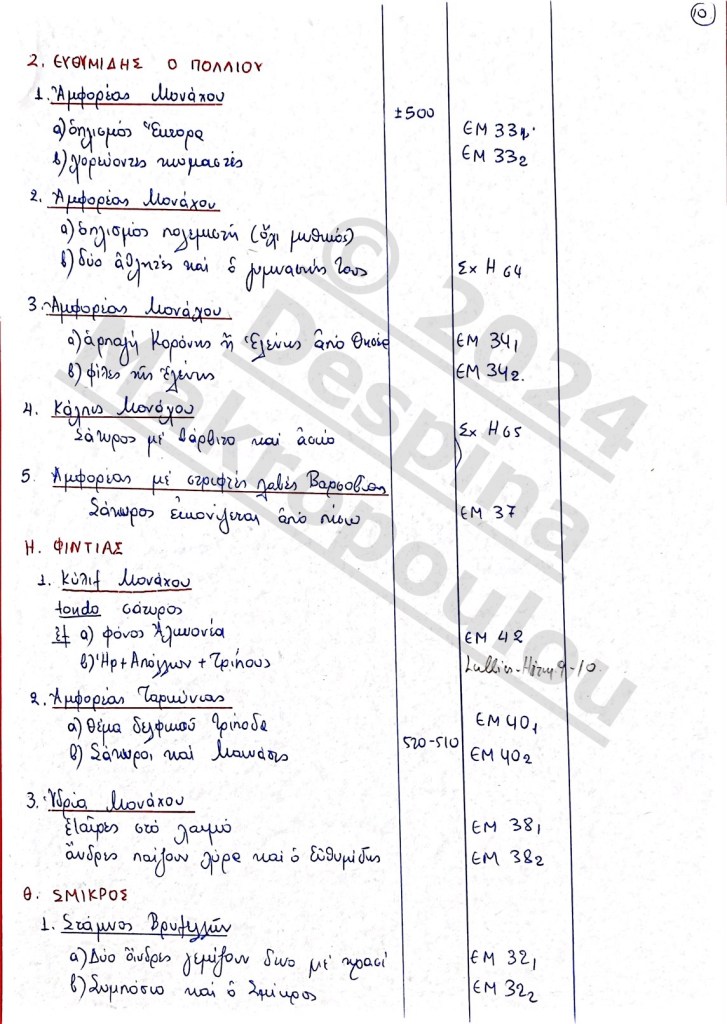 10
2. ΕΥΘΥΜΙΔΗΣ Ο ΠΟΛΛΙΟΥ
1. Ἀμφορέας Μονάχου
±500
α) ὁπλισμός Ἕκτορα ΕΜ 33₁
β) χορεύοντες κωμαστές ΕΜ 33₂
2. Ἀμφορέας Μονάχου
α) ὁπλισμός πολεμιστῆ (ὄχι μυθικός)
β) δύο ἀθλητές καί ὁ γυμναστής τους Σχ Η 64
3. Ἀμφορέας Μονάχου
α) ἁρπαγή Κορώνης ἤ Ἑλένης ἀπό Θησέα ΕΜ 34₁
β) φίλες τῆς Ἑλένης ΕΜ 34₂
4. Κάλπις Μονάχου
Σάτυρος μέ βάρβιτο καί ἀσκό Σχ Η 65
5. Ἀμφορέας μέ στριφτές λαβές Βαρσοβίας
Σάτυρος εἰκονίζεται ἀπό πίσω ΕΜ 37
Η. ΦΙΝΤΙΑΣ
1. Κύλιξ Μονάχου
tondo σάτυρος
ἔξ α) φόνος Ἀλκυονέα ΕΜ 42
β) Ἡρ + Ἀπόλλων + Τρίπους Lullies-Hirmer 9-10
2. Ἀμφορέας Ταρκυνίας
α) Θέμα δελφικοῦ Τρίποδα ΕΜ 40₁
520-510
β) Σάτυροι καί Μαινάδες ΕΜ 40₂
3. Ὑδρία Μονάχου
ἑταῖρες στό λαγυνό ΕΜ 38₁
ἄνδρες παίζουν λύρα καί ὁ Εὐθυμίδης ΕΜ 38₂
Θ. ΣΜΙΚΡΟΣ
1. Στάμνος Βρυξελλῶν
α) Δύο ἄνδρες γεμίζουν δινο μέ κρασί ΕΜ 32₁
β) Συμπόσιο καί ὁ Σμίκρος ΕΜ 32₂
© 2024
Despina
Makropoulou